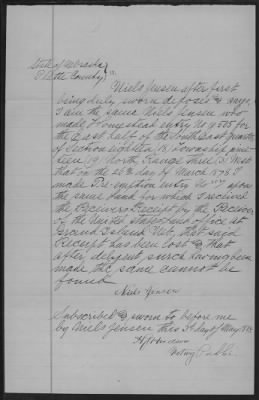 State of Nebraska
Platte County } ss
Niels Jensen after first
being duly sworn deposes & says,
I am the same Niels Jensen who
made Homestead entry No 9585 for
the East half of the South East quarter
of Section eighteen (18) Township nine-
teen (19) North, Range Three (3) West
that on the 26th day of March 1875 I
made Pre-emption entry No upon
the same land for which I received
the Receivers Receipt by the Receiver
of the United States land office at
Grand Island Neb, that said
Receipt has been lost & that
after diligent surch having been
made the same cannot be
found
Niels Jensen
Subscribed & sworn to before me
by Niels Jensen this 3d day of May
Notary Public